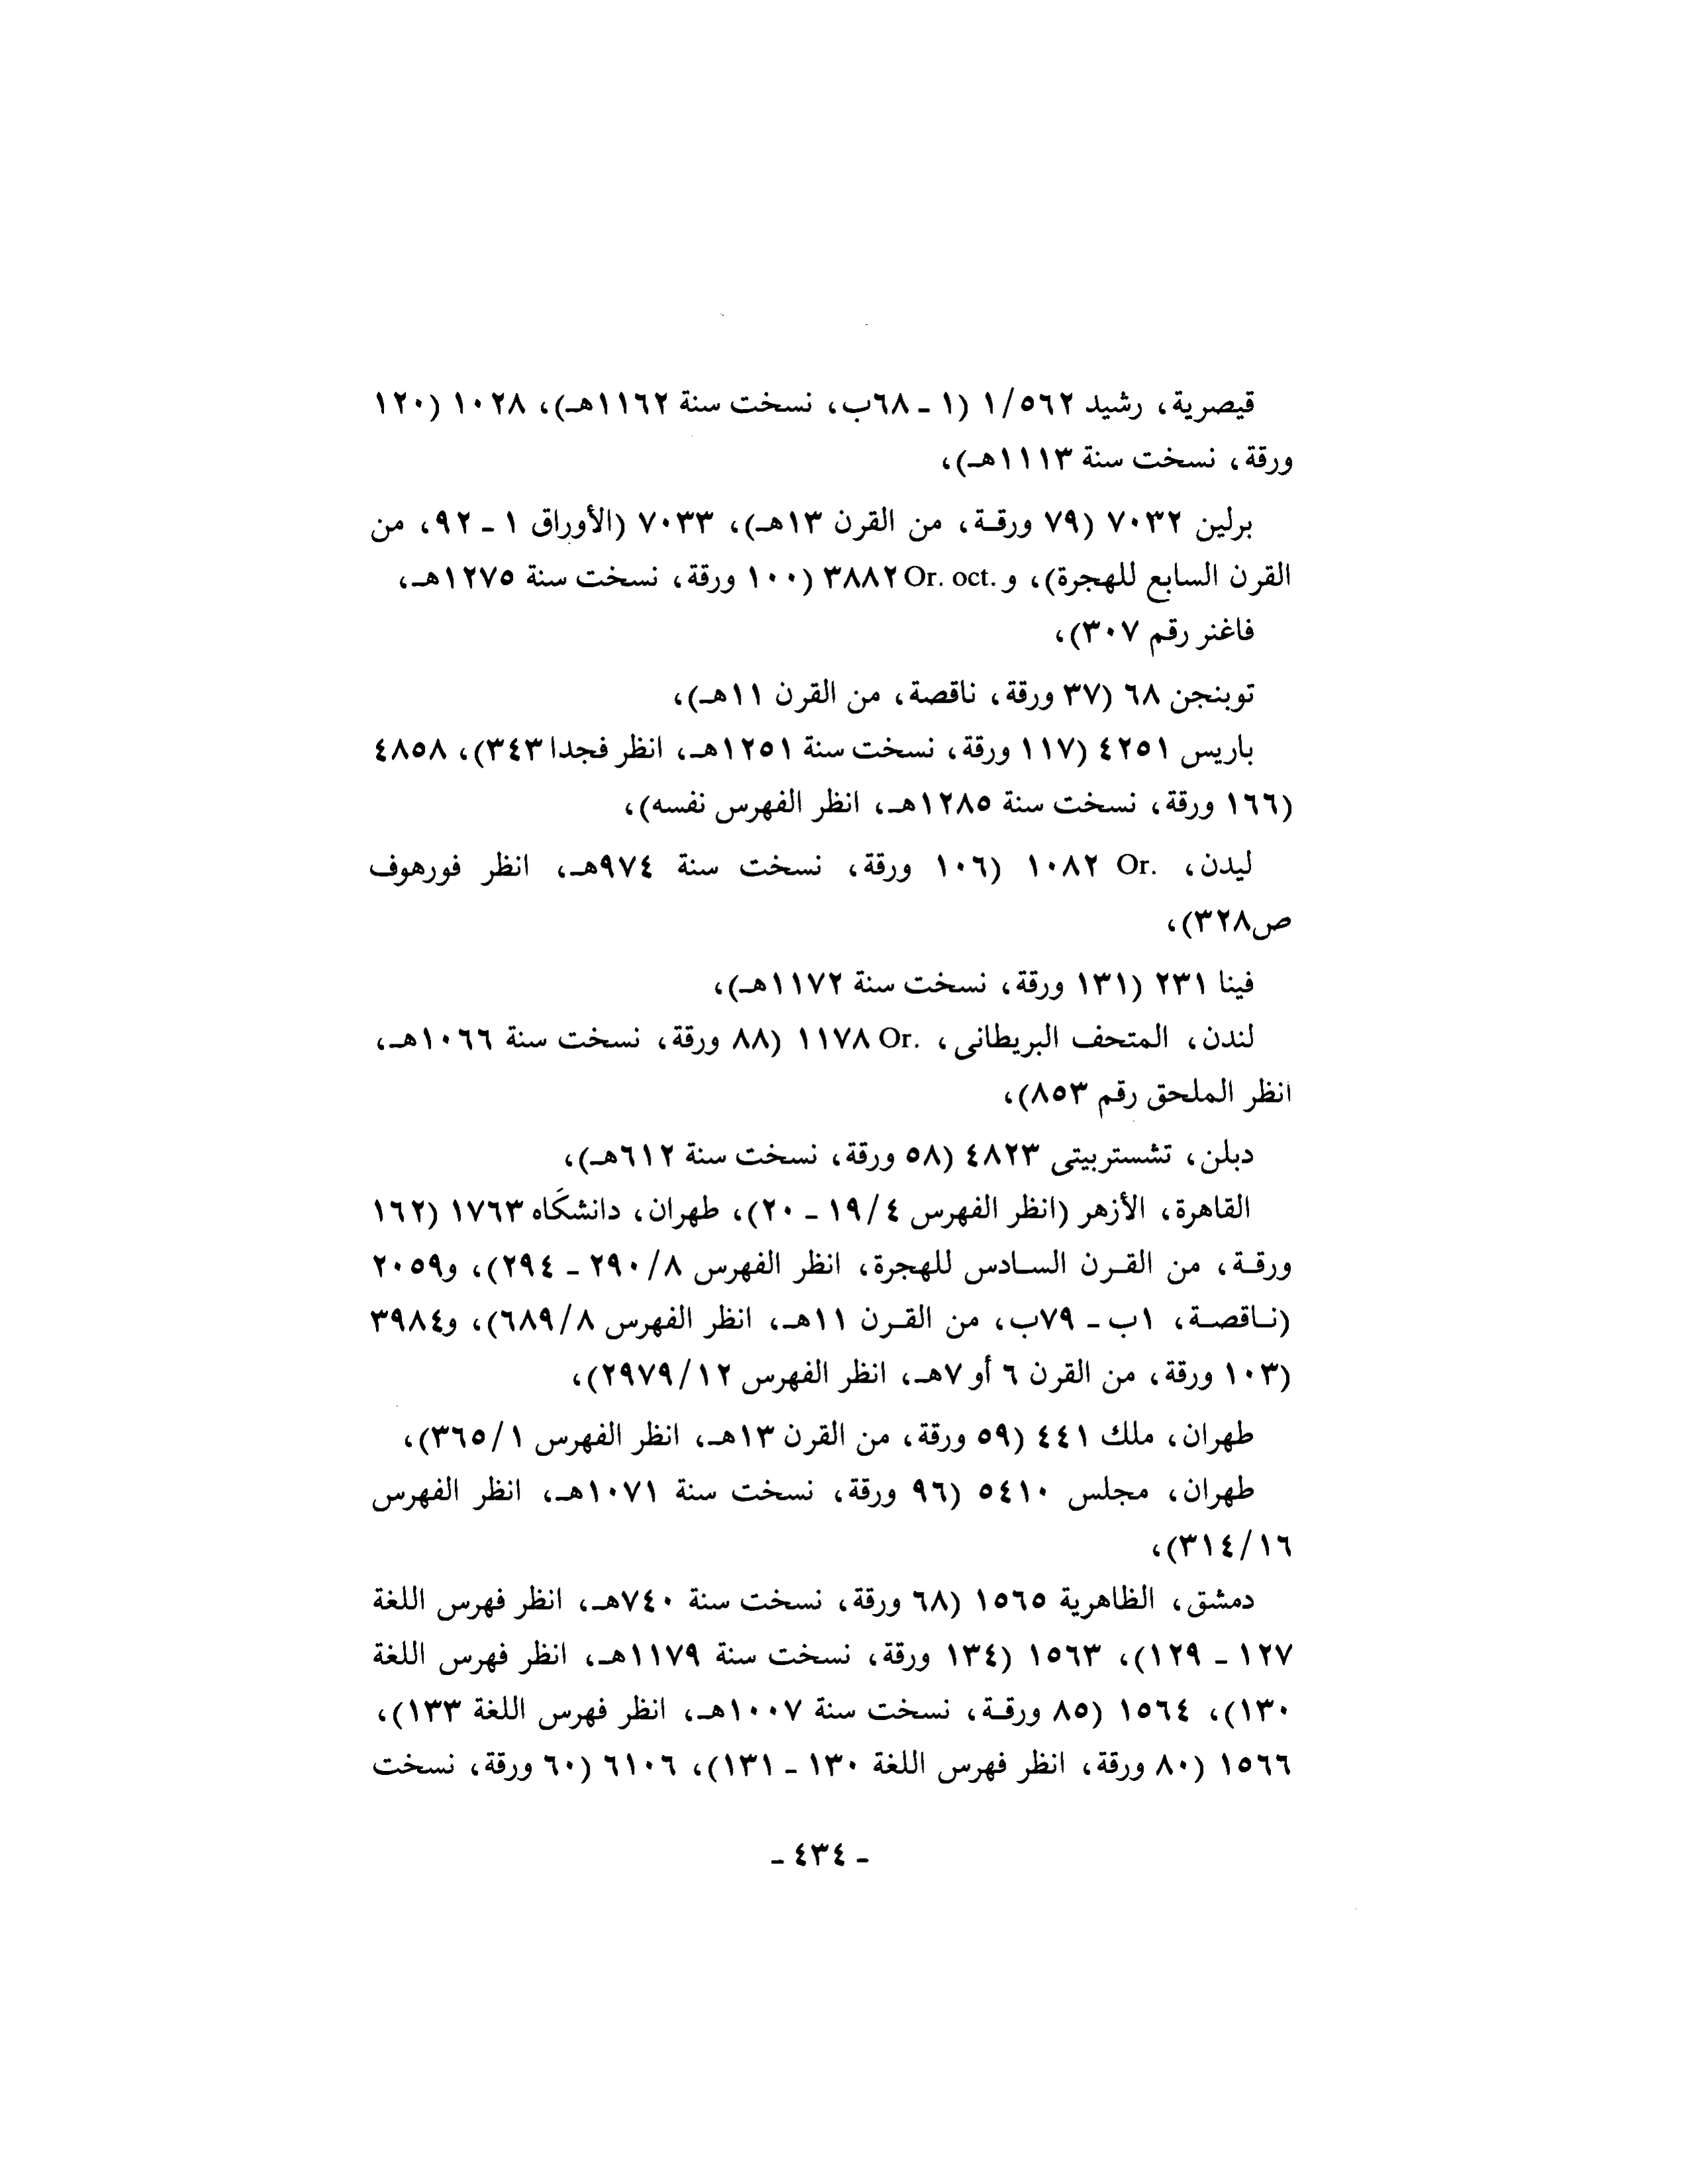 قيصرية، رشيد ١/٥٦٢ (١ ـ ٦٨ب، نسخت سنة ١١٦٢هـ)، ١٠٢٨ (١٢٠
ورقة، نسخت سنة ١١١٣هـ)،
برلين ٧٠٣٢ (٧٩ ورقـة، من القرن ١٣هـ)، ٧٠٣٣ (الأوراق ١ ـ ٩٢، من
القرن السابع للهجرة)، و Or. oct. ٣٨٨٢ (١٠٠ ورقة، نسخت سنة ١٢٧٥هـ،
فاغنر رقم ٣٠٧)،
توبنجن ٦٨ (٣٧ ورقة، ناقصة، من القرن ١١هـ)،
باريس ٤٢٥١ (١١٧ ورقة، نسخت سنة ١٢٥١هـ، انظر فجدا ٣٤٣)، ٤٨٥٨
(١٦٦ ورقة، نسخت سنة ١٢٨٥هـ، انظر الفهرس نفسه)،
ليدن، Or. ١٠٨٢ (١٠٦ ورقة، نسخت سنة ٩٧٤هـ، انظر فورهوف
ص٣٢٨)،
فينا ٢٣١ (١٣١ ورقة، نسخت سنة ١١٧٢هـ)،
لندن، المتحف البريطانى، Or. ١١٧٨ (٨٨ ورقة، نسخت سنة ١٠٦٦هـ،
انظر الملحق رقم ٨٥٣)،
دبلن، تشستربيتى ٤٨٢٣ (٥٨ ورقة، نسخت سنة ٦١٢هـ)،
القاهرة، الأزهر (انظر الفهرس ١٩/٤ ـ ٢٠)، طهران، دانشكَاه ١٧٦٣ (١٦٢
ورقـة، من القـرن السـادس للهجرة، انظر الفهرس ٢٩٠/٨ ـ ٢٩٤)، و٢٠٥٩
(نـاقصـة، ١ب ـ ٧٩ب، من القـرن ١١هـ، انظر الفهرس ٦٨٩/٨)، و٣٩٨٤
(١٠٣ ورقة، من القرن ٦ أو ٧هـ، انظر الفهرس ٢٩٧٩/١٢)،
طهران، ملك ٤٤١ (٥٩ ورقة، من القرن ١٣هـ، انظر الفهرس ٣٦٥/١)،
طهران، مجلس ٥٤١٠ (٩٦ ورقة، نسخت سنة ١٠٧١هـ، انظر الفهرس
٣١٤/١٦)،
دمشق، الظاهرية ١٥٦٥ (٦٨ ورقة، نسخت سنة ٧٤٠هـ، انظر فهرس اللغة
١٢٧ ـ ١٢٩)، ١٥٦٣ (١٣٤ ورقة، نسخت سنة ١١٧٩هـ، انظر فهرس اللغة
١٣٠)، ١٥٦٤ (٨٥ ورقـة، نسخت سنة ١٠٠٧هـ، انظر فهرس اللغة ١٣٣)،
١٥٦٦ (٨٠ ورقة، انظر فهرس اللغة ١٣٠ ـ ١٣١)، ٦١٠٦ (٦٠ ورقة، نسخت
ـ ٤٣٤ ـ